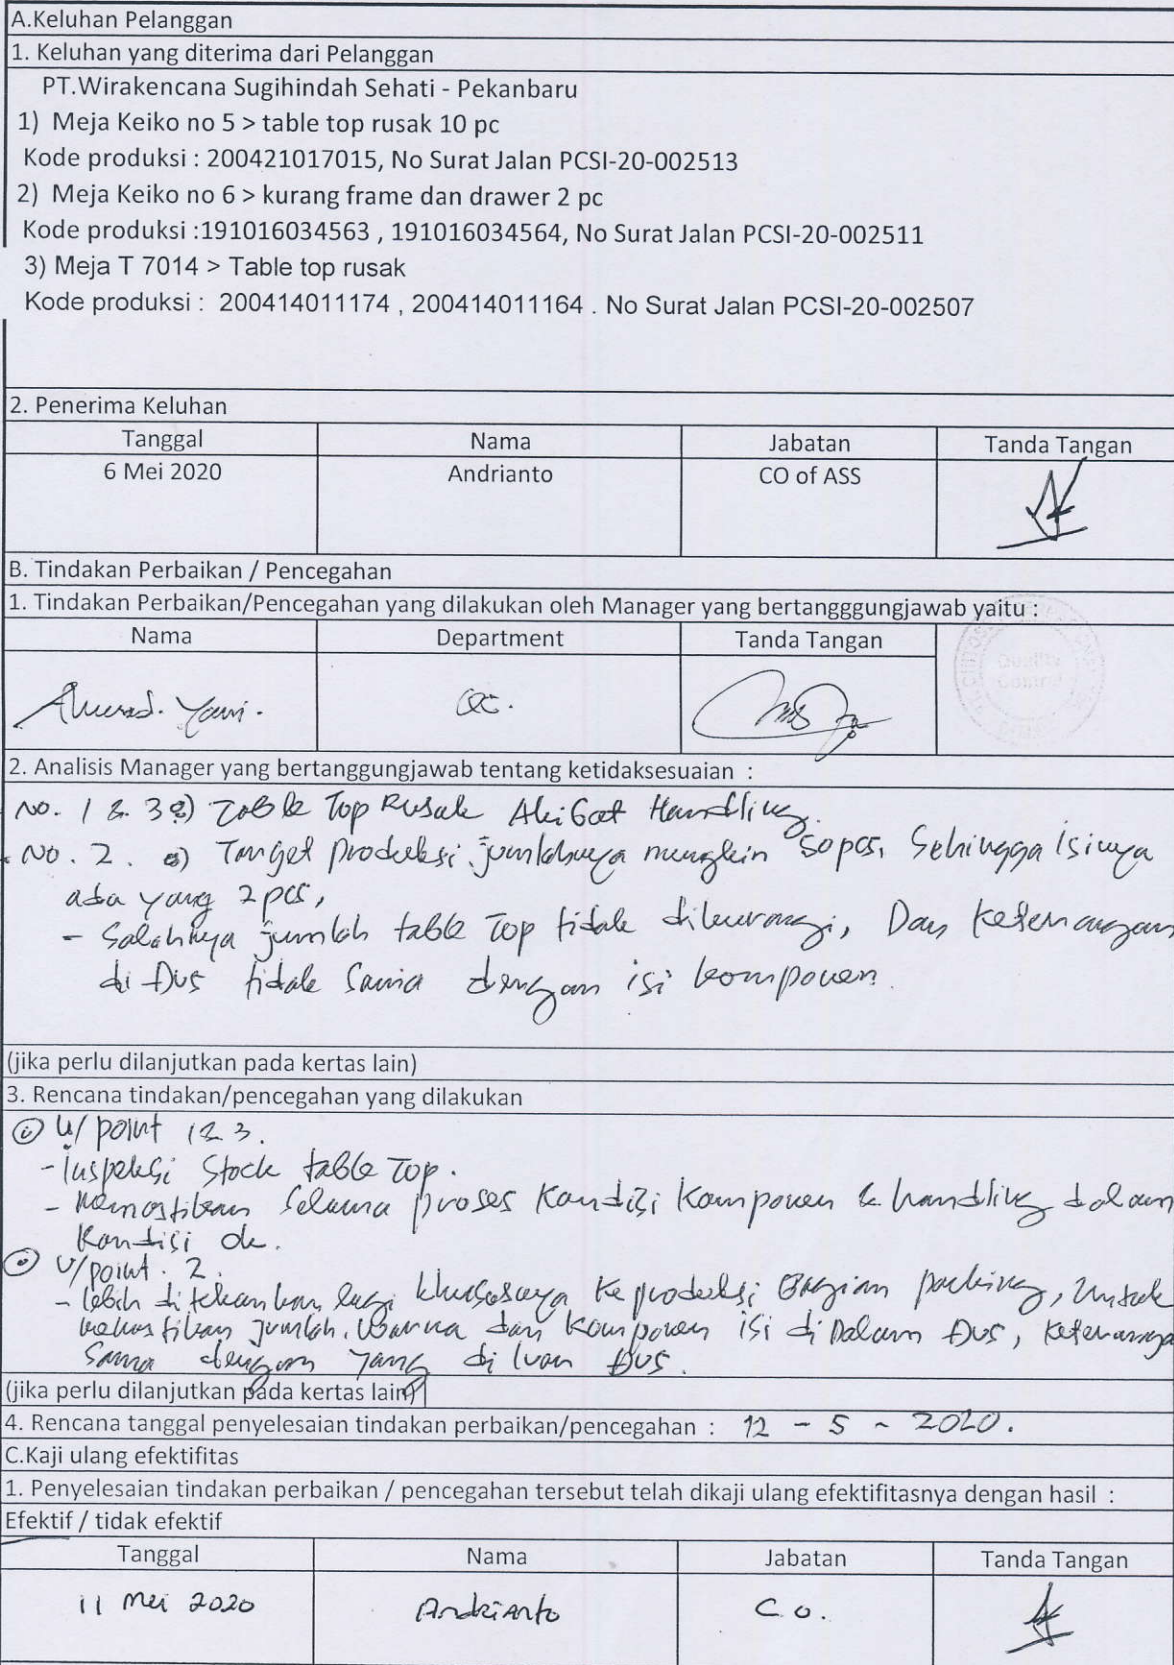 A.Keluhan Pelanggan
1. Keluhan yang diterima dari Pelanggan
PT.Wirakencana Sugihindah Sehati - Pekanbaru
1) Meja Keiko no 5 > table top rusak 10 pc
Kode produksi : 200421017015, No Surat Jalan PCSI-20-002513
2) Meja Keiko no 6 > kurang frame dan drawer 2 pc
Kode produksi :191016034563 , 191016034564, No Surat Jalan PCSI-20-002511
3) Meja T 7014 > Table top rusak
Kode produksi : 200414011174 , 200414011164 . No Surat Jalan PCSI-20-002507
2. Penerima Keluhan
Tanggal Nama Jabatan Tanda Tangan
6 Mei 2020 Andrianto CO of ASS
B. Tindakan Perbaikan / Pencegahan
1. Tindakan Perbaikan/Pencegahan yang dilakukan oleh Manager yang bertangggungjawab yaitu :
Nama Department Tanda Tangan
Quality
Control
Ahmad. Yani. QC.
2. Analisis Manager yang bertanggungjawab tentang ketidaksesuaian :
No. 1 & 3 Table Top Rusak Akibat Handling.
No. 2. Target produksi jumlahnya mungkin 50pcs, Sehingga isinya
ada yang 2 pcs,
- Salahnya jumlah table Top tidak dikurangi, Dan Keterangan
di Dus tidak Sama dengan isi komponen.
(jika perlu dilanjutkan pada kertas lain)
3. Rencana tindakan/pencegahan yang dilakukan
U/ point 1 & 3.
- Inspeksi Stock table Top.
- Memastikan Selama proses Kondisi Komponen & handling dalam
Kondisi ok.
U/point. 2.
- lebih ditekankan lagi khususnya Ke produksi Bagian packing, Untuk
memastikan Jumlah, Warna dan Komponen isi di Dalam Dus, Keteranga
Sama dengan Yang di luar Dus.
(jika perlu dilanjutkan pada kertas lain)
4. Rencana tanggal penyelesaian tindakan perbaikan/pencegahan : 12 - 5 - 2020.
C.Kaji ulang efektifitas
1. Penyelesaian tindakan perbaikan / pencegahan tersebut telah dikaji ulang efektifitasnya dengan hasil :
Efektif / tidak efektif
Tanggal Nama Jabatan Tanda Tangan
11 Mei 2020 Andrianto C.O.